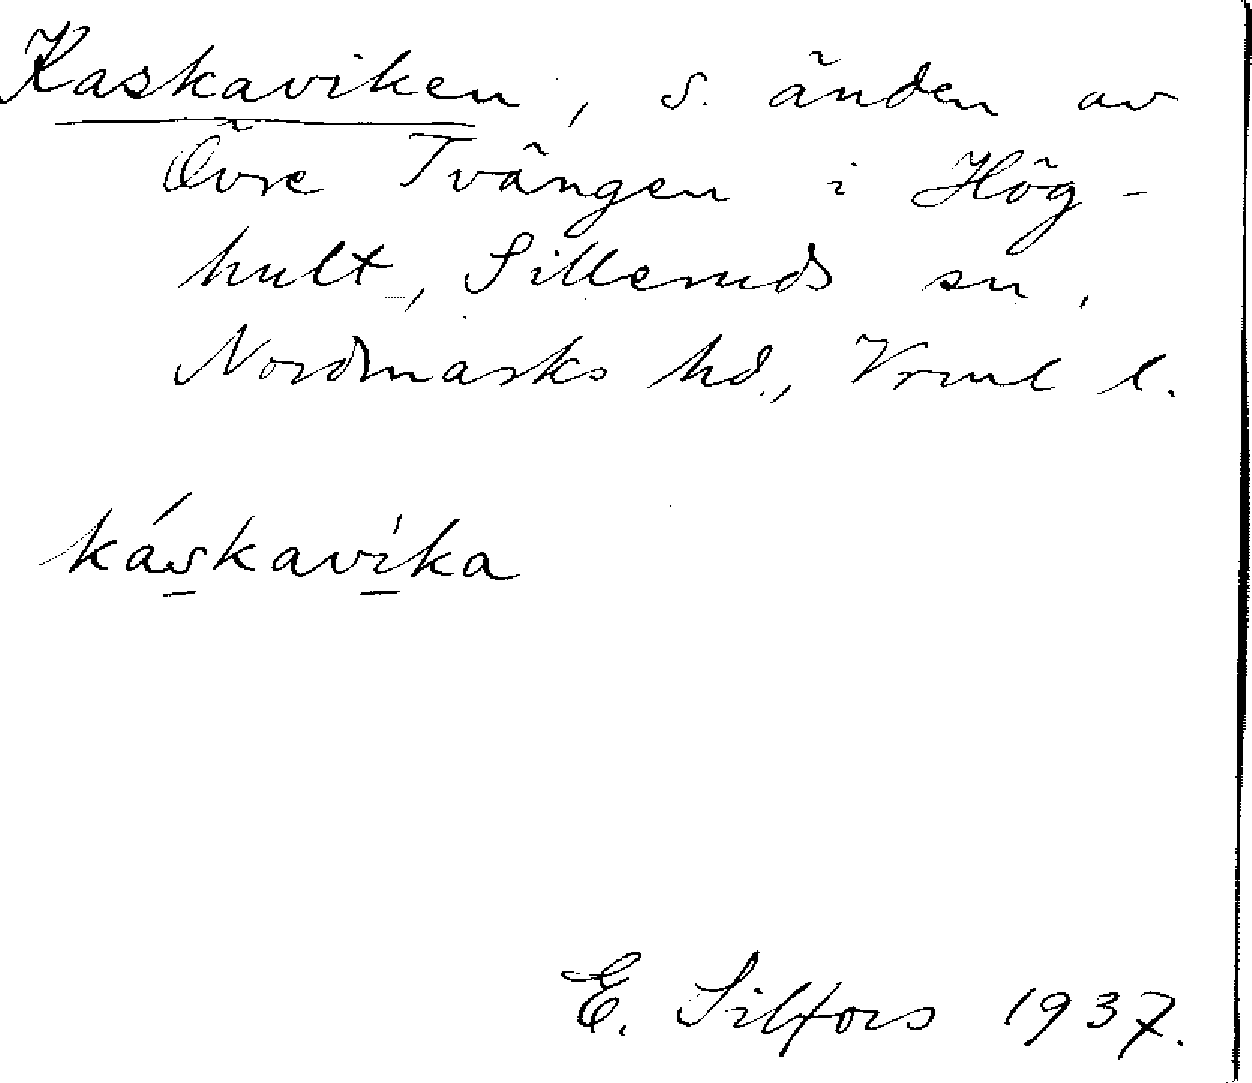 Kaskaviken, s. änden av
Övre Tvängen i Hög-
hult, Silleruds sn,
Nordmarks hd., Vrml l.
káskavìka
E. Silfors 1937.